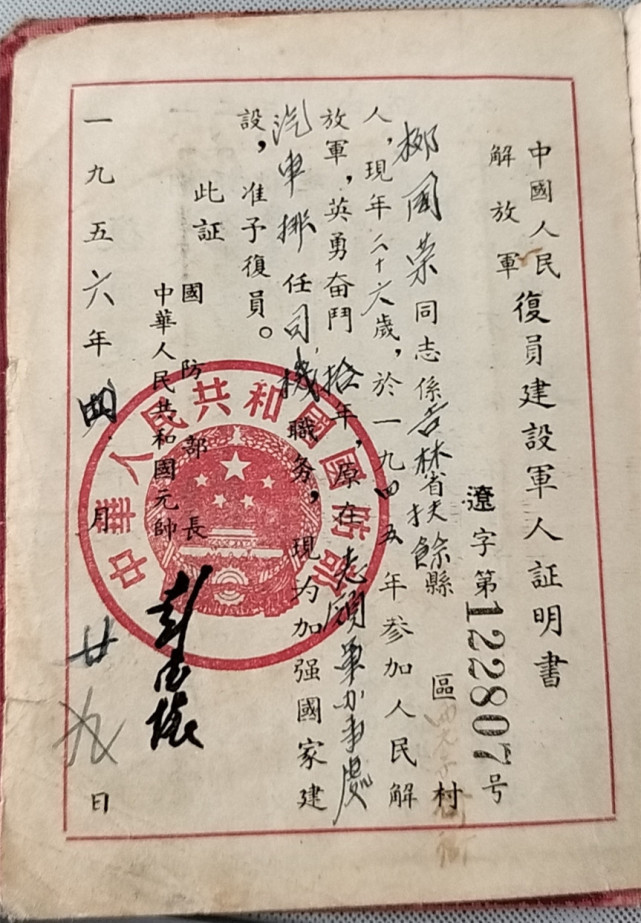 中國人民
解放軍
復員建設軍人証明書
遼字第122807号
柳國荣同志係吉林省扶餘縣 區 村
人，現年二十六歲，於一九四五年參加人民解
放軍，英勇奮鬥拾年，原在志願軍办事處
汽車排任司機職务，現为加强國家建
設，准予復員。
此証
國防部長
中華人民共和國元帥
彭德懷
一九五六年四月廿九日
中華人民共和國國防部